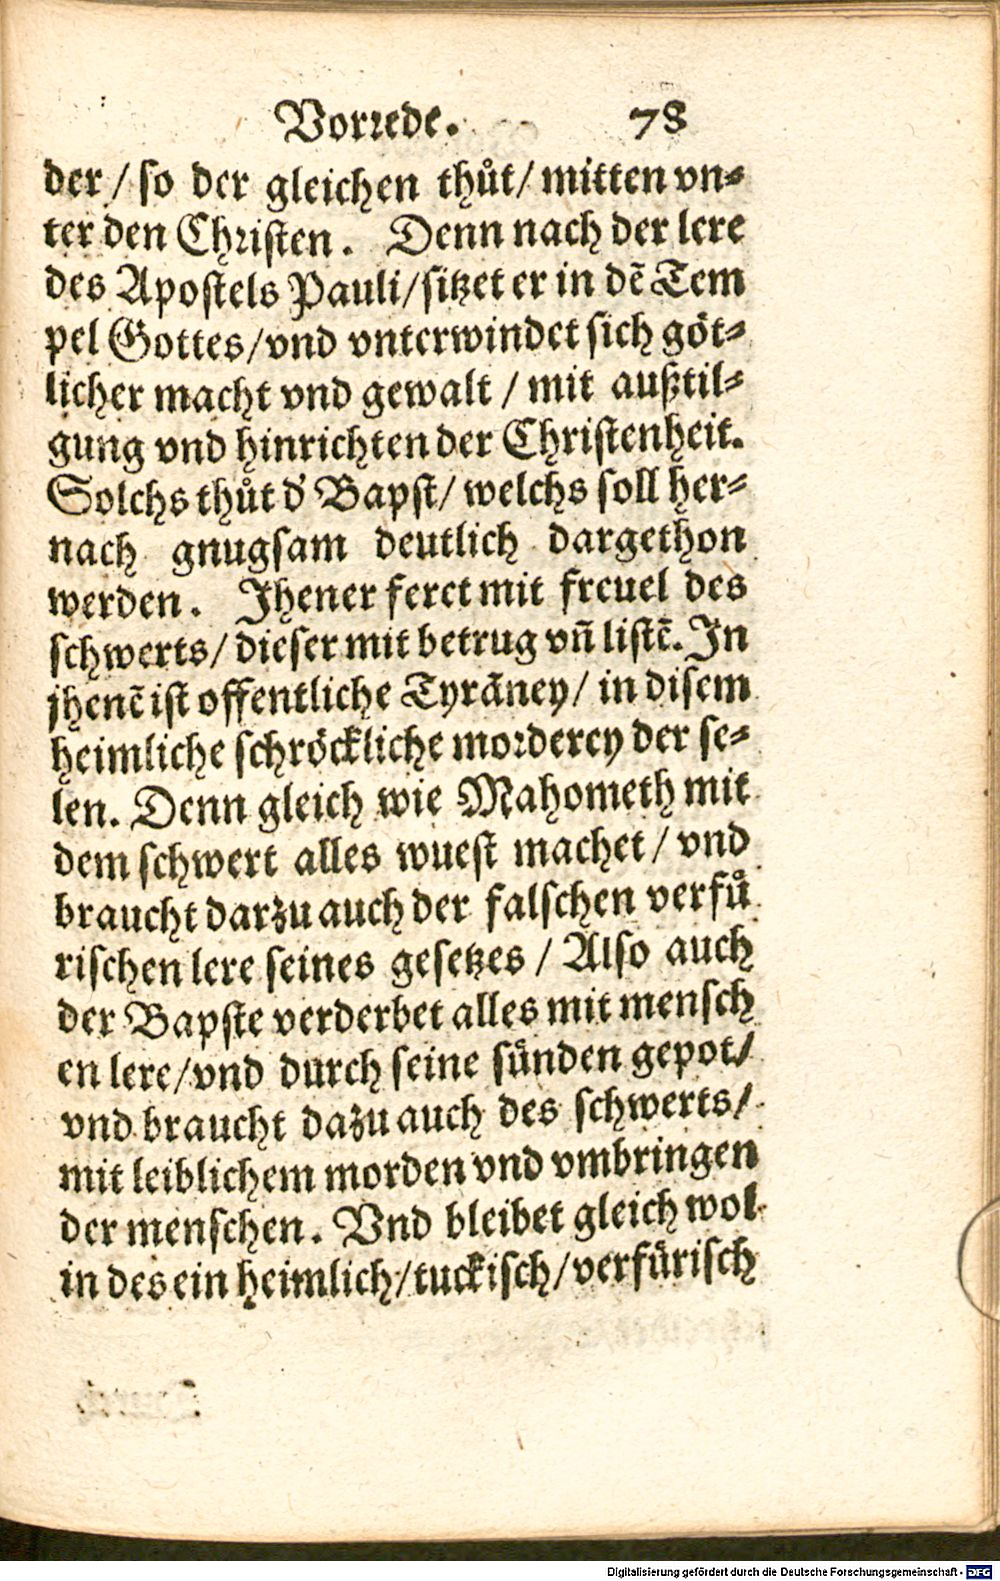 Vorrede. 78
der / so der gleichen thůt / mitten vn⸗
ter den Christen. Denn nach der lere
des Apostels Pauli / sitzet er in dẽ Tem
pel Gottes / vnd vnterwindet sich göt⸗
licher macht vnd gewalt / mit außtil⸗
gung vnd hinrichten der Christenheit.
Solchs thůt d' Bapst / welchs soll her⸗
nach gnugsam deutlich dargethon
werden. Jhener feret mit freuel des
schwerts / dieser mit betrug vñ listẽ. In
jhenẽ ist offentliche Tyrãney / in disem
heimliche schröckliche morderey der se⸗
len. Denn gleich wie Mahometh mit
dem schwert alles wuest machet / vnd
braucht darzu auch der falschen verfů
rischen lere seines gesetzes / Also auch
der Bapste verderbet alles mit mensch
en lere / vnd durch seine sünden gepot /
vnd braucht dazu auch des schwerts /
mit leiblichem morden vnd vmbringen
der menschen. Vnd bleibet gleich wol
in des ein heimlich / tuckisch / verfürisch
Digitalisierung gefördert durch die Deutsche Forschungsgemeinschaft - DFG